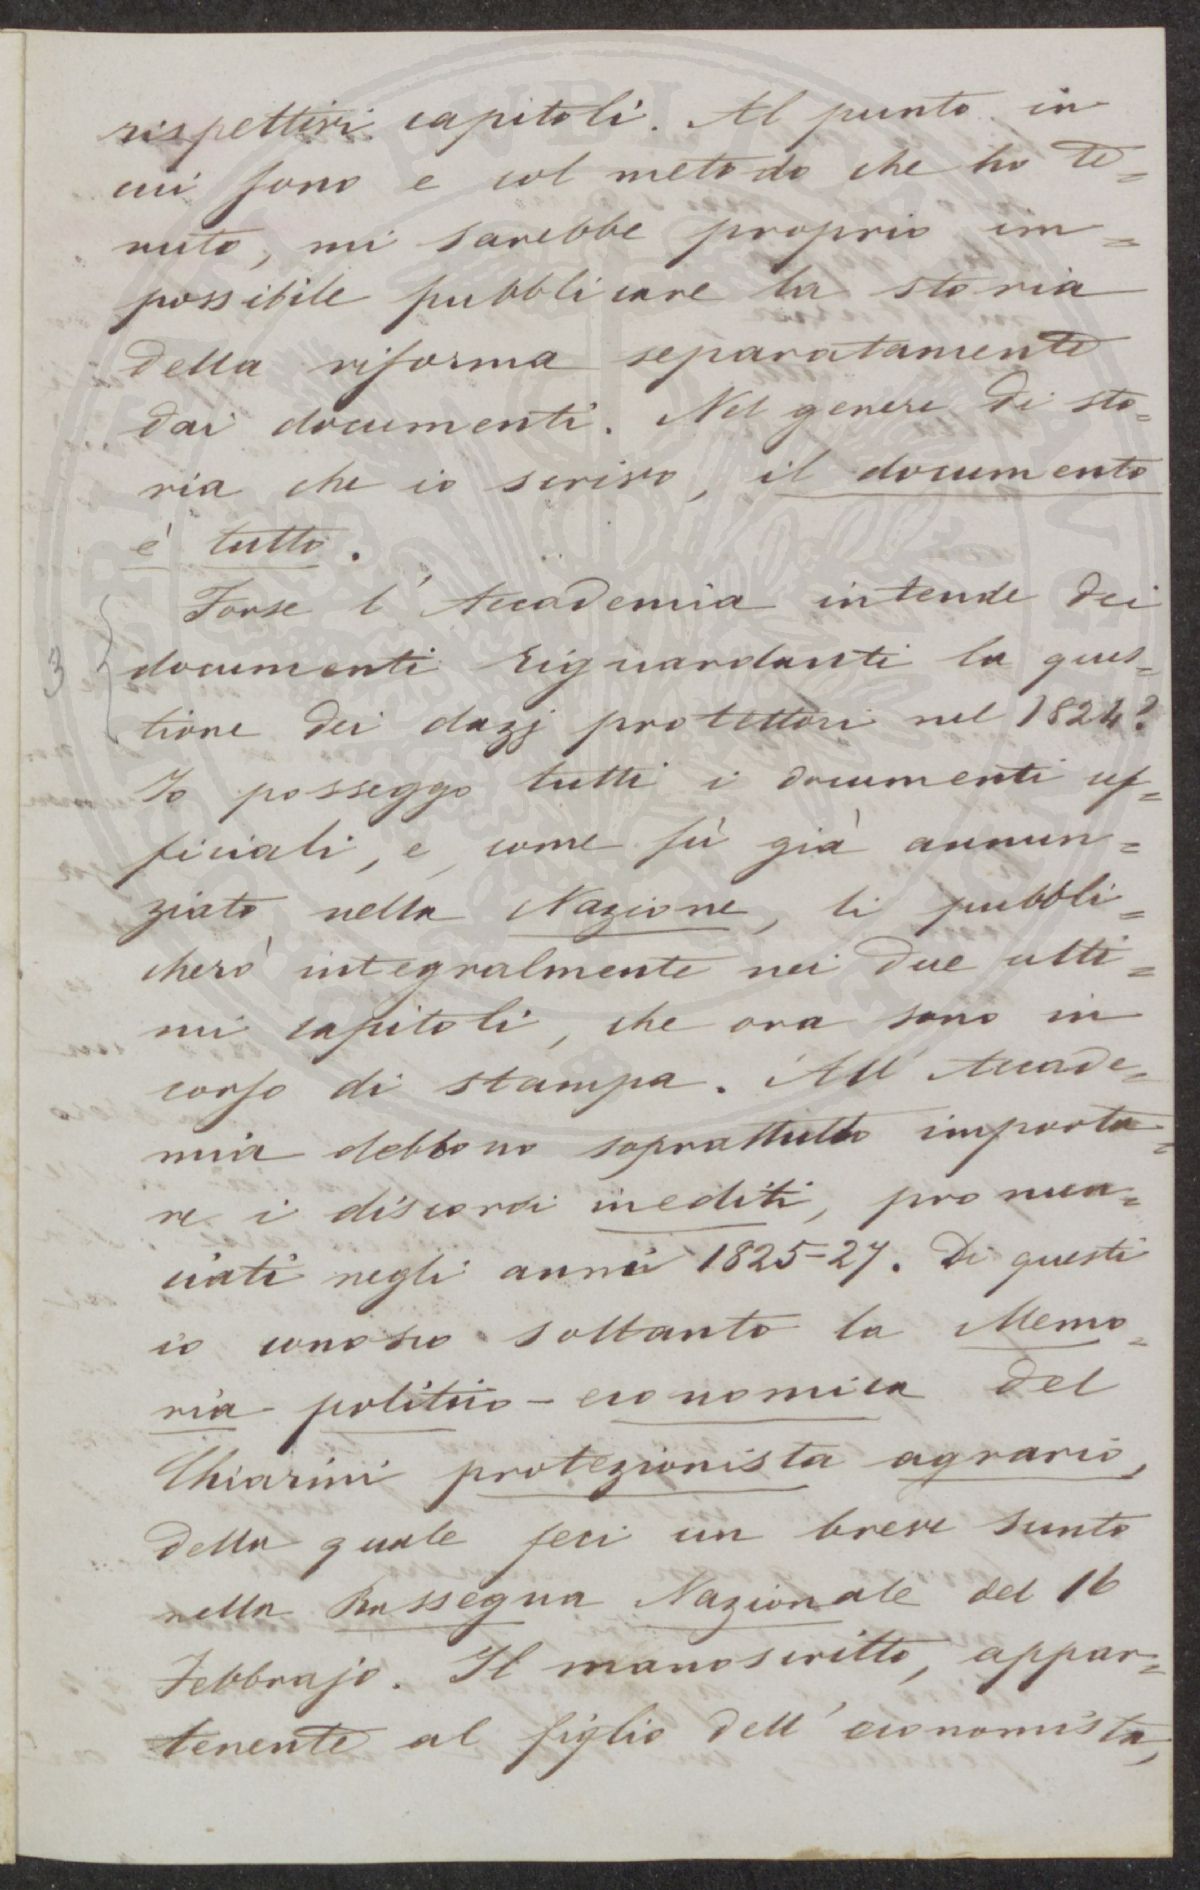 rispettivi capitoli. Al punto in
cui sono e col metodo che ho te=
nuto, mi sarebbe proprio im=
possibile pubblicare la storia
della riforma separatamente
dai documenti. Nel genere di sto=
ria che io scrivo, il documento
è tutto.
Forse l'Accademia intende dei
3 documenti riguardanti la ques=
tione dei dazj protettori nel 1824?
Io posseggo tutti i documenti uf=
ficiali, e, come fù già annun=
ziato nella Nazione, li pubbli=
cherò integralmente nei due ulti=
mi capitoli, che ora sono in
corso di stampa. All'Accade=
mia debbono soprattutto importa=
re i discorsi inediti, pronun=
ciati negli anni 1825=27. Di questi
io conosco soltanto la Memo=
ria politico-economica del
Chiarini protezionista agrario,
della quale feci un breve sunto
nella Rassegna Nazionale del 16
Febbrajo. Il manoscritto, appar=
tenente al figlio dell'economista,